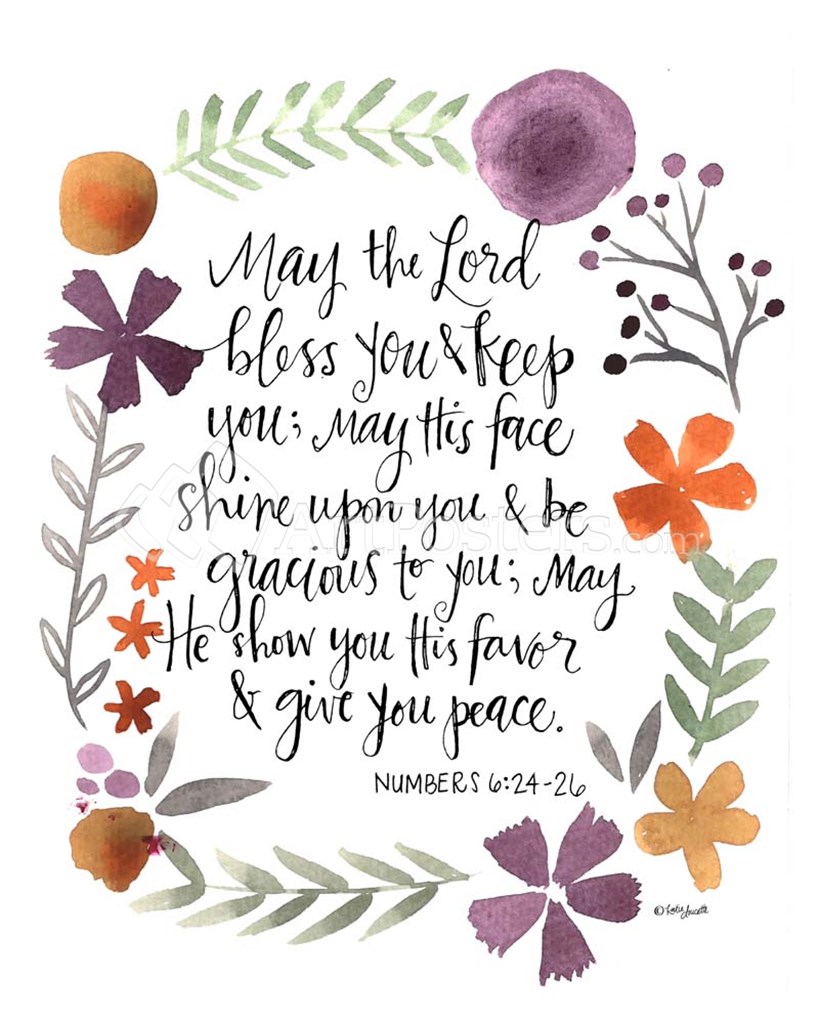 May the Lord
bless you & keep
you; May His face
shine upon you & be
gracious to you; May
He show you His favor
& give you peace.
NUMBERS 6:24-26
ArtPosters.com
©Katie Doucette